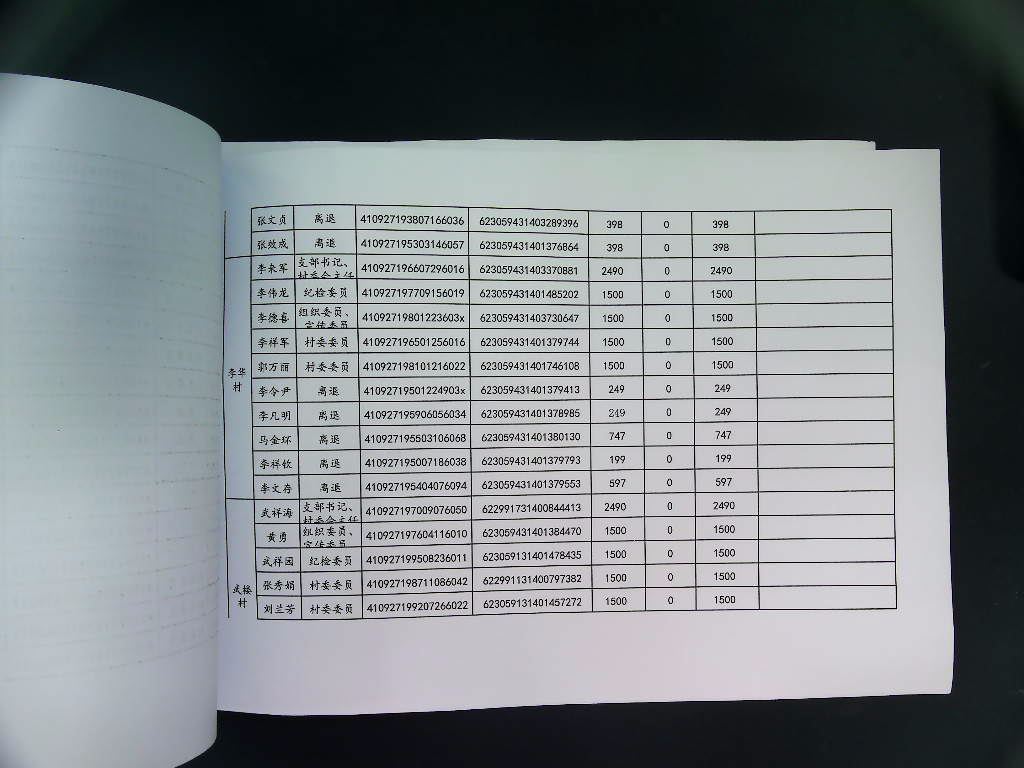 张文贞 离退 410927193807166036 623059431403289396 398 0 398
张效成 离退 410927195303146057 623059431401376864 398 0 398
李来军 支部书记、村委会主任 410927196607296016 623059431403370881 2490 0 2490
李伟龙 纪检委员 410927197709156019 623059431401485202 1500 0 1500
李德喜 组织委员、宣传委员 41092719801223603x 623059431403730647 1500 0 1500
李祥军 村委委员 410927196501256016 623059431401379744 1500 0 1500
郭万丽 村委委员 410927198101216022 623059431401746108 1500 0 1500
李华村
李令尹 离退 41092719501224903x 623059431401379413 249 0 249
李凡明 离退 410927195906056034 623059431401378985 249 0 249
马金环 离退 410927195503106068 623059431401380130 747 0 747
李祥钦 离退 410927195007186038 623059431401379793 199 0 199
李文存 离退 410927195404076094 623059431401379553 597 0 597
武祥海 支部书记、村委会主任 410927197009076050 622991731400844413 2490 0 2490
黄勇 组织委员、宣传委员 410927197604116010 623059431401384470 1500 0 1500
武祥园 纪检委员 410927199508236011 623059131401478435 1500 0 1500
张秀娟 村委委员 410927198711086042 622991131400797382 1500 0 1500
武楼村
刘兰芳 村委委员 410927199207266022 623059131401457272 1500 0 1500